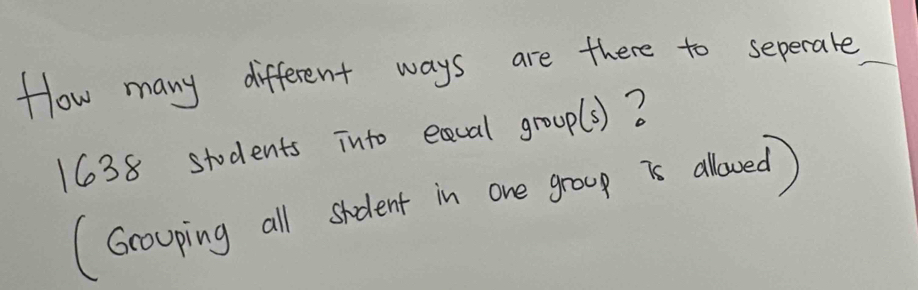 How many different ways are there to seperate
1638 students into equal group(s)?
(Grouping all student in one group is allowed)